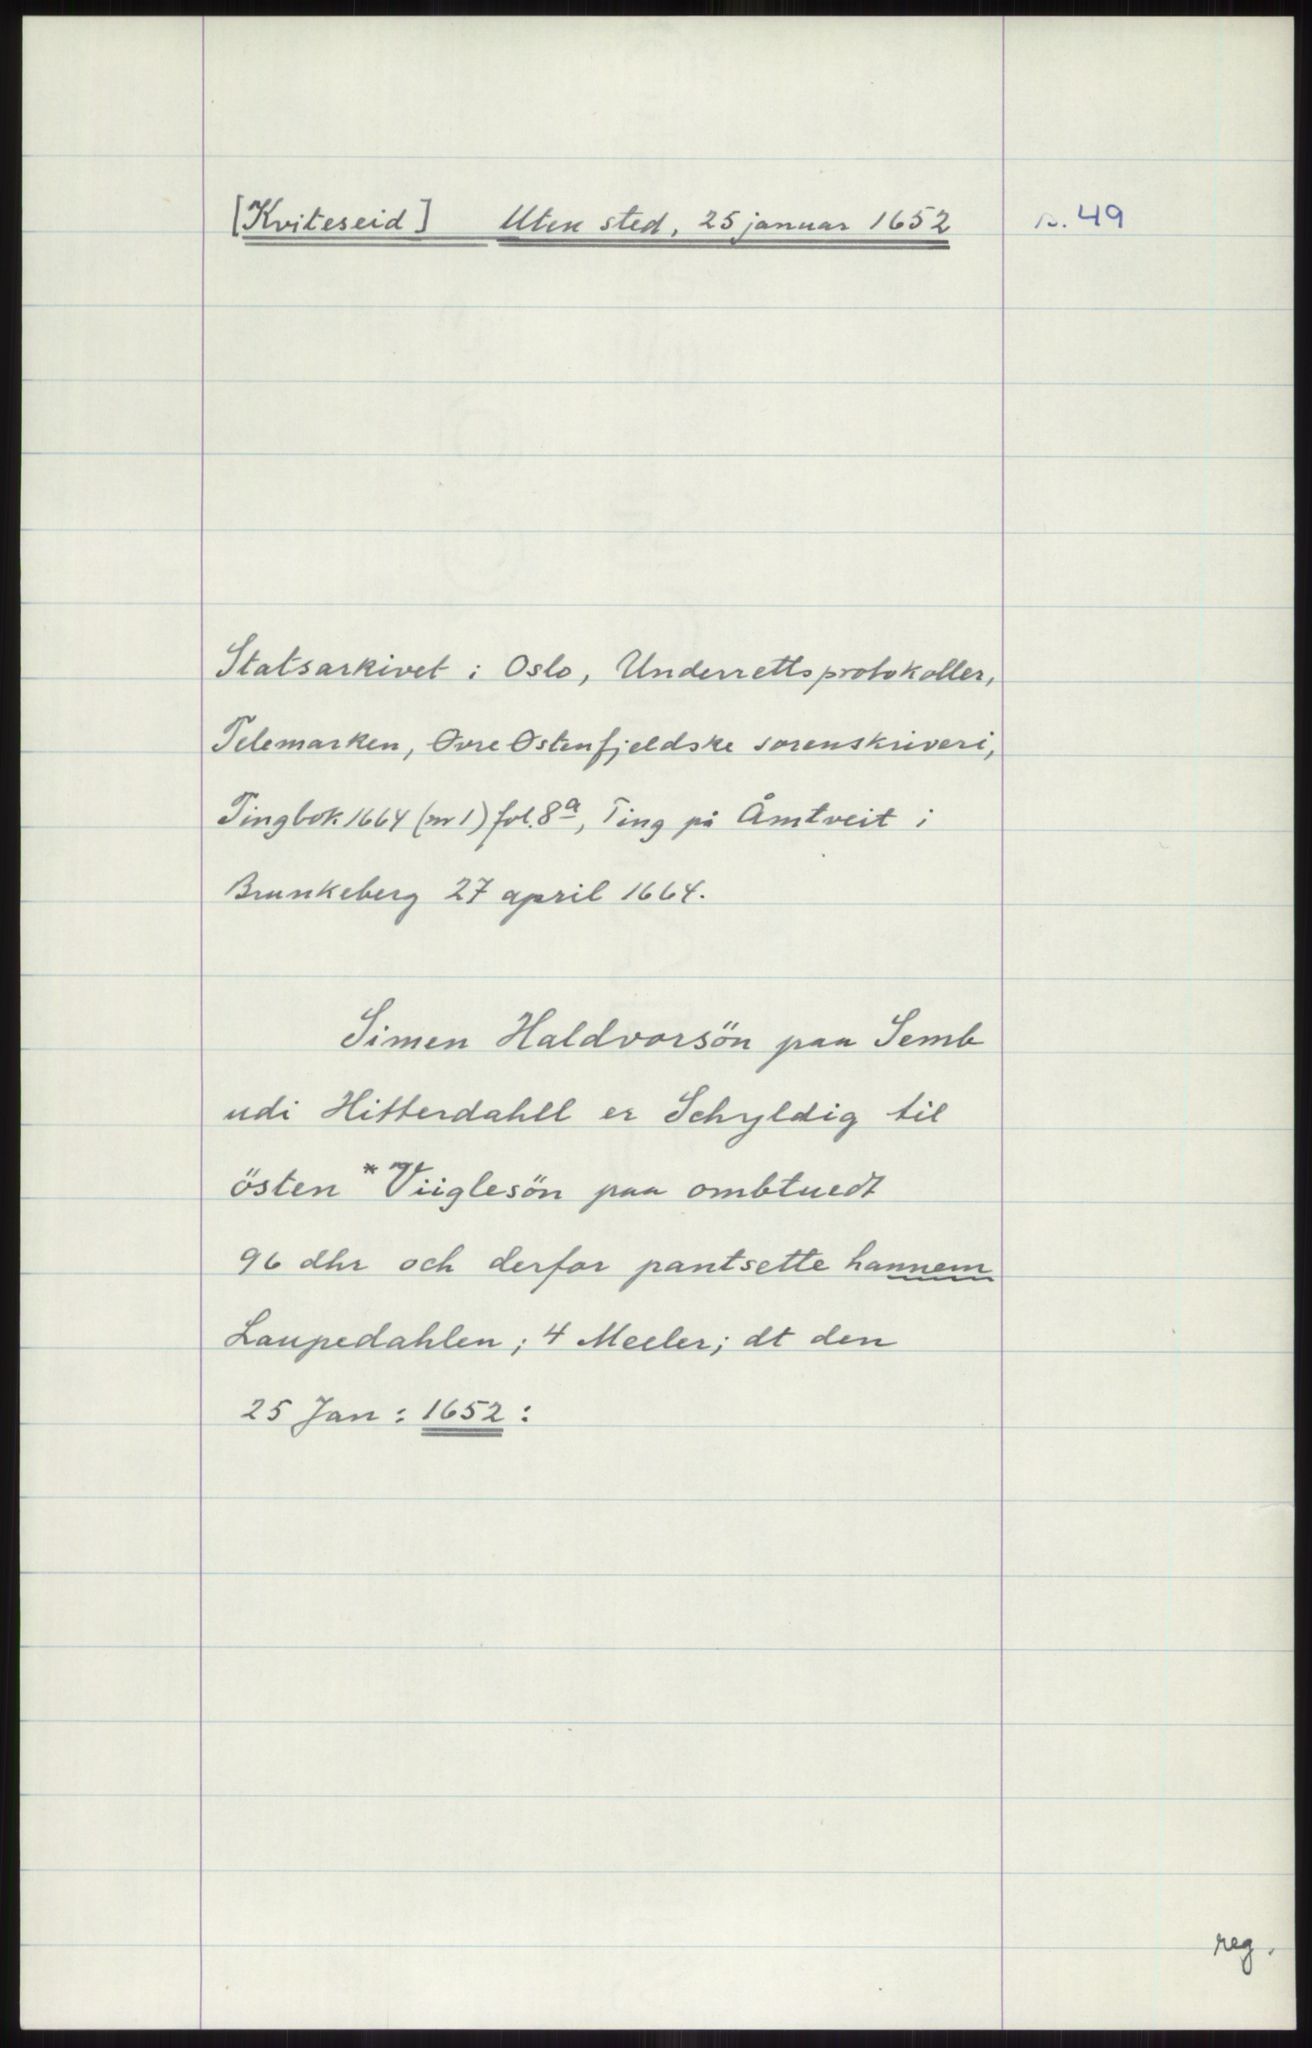 [Kviteseid] Uten sted, 25 januar 1652 s. 49
Statsarkivet i Oslo, Underrettsprotokoller,
Telemarken, Øvre Østenfjeldske sorenskriveri,
Tingbok 1664 (nr 1) fol. 8a, Ting på Åmtveit i
Brunkeberg 27 april 1664.
Simen Haldvorsön paa Semb
udi Hitterdahll er Schyldig til
östen *Viiglesön paa ombtuedt
96 dhr och derfor pantsette hannem
Laupedahlen; 4 Meeler; dt den
25 Jan: 1652:
reg.